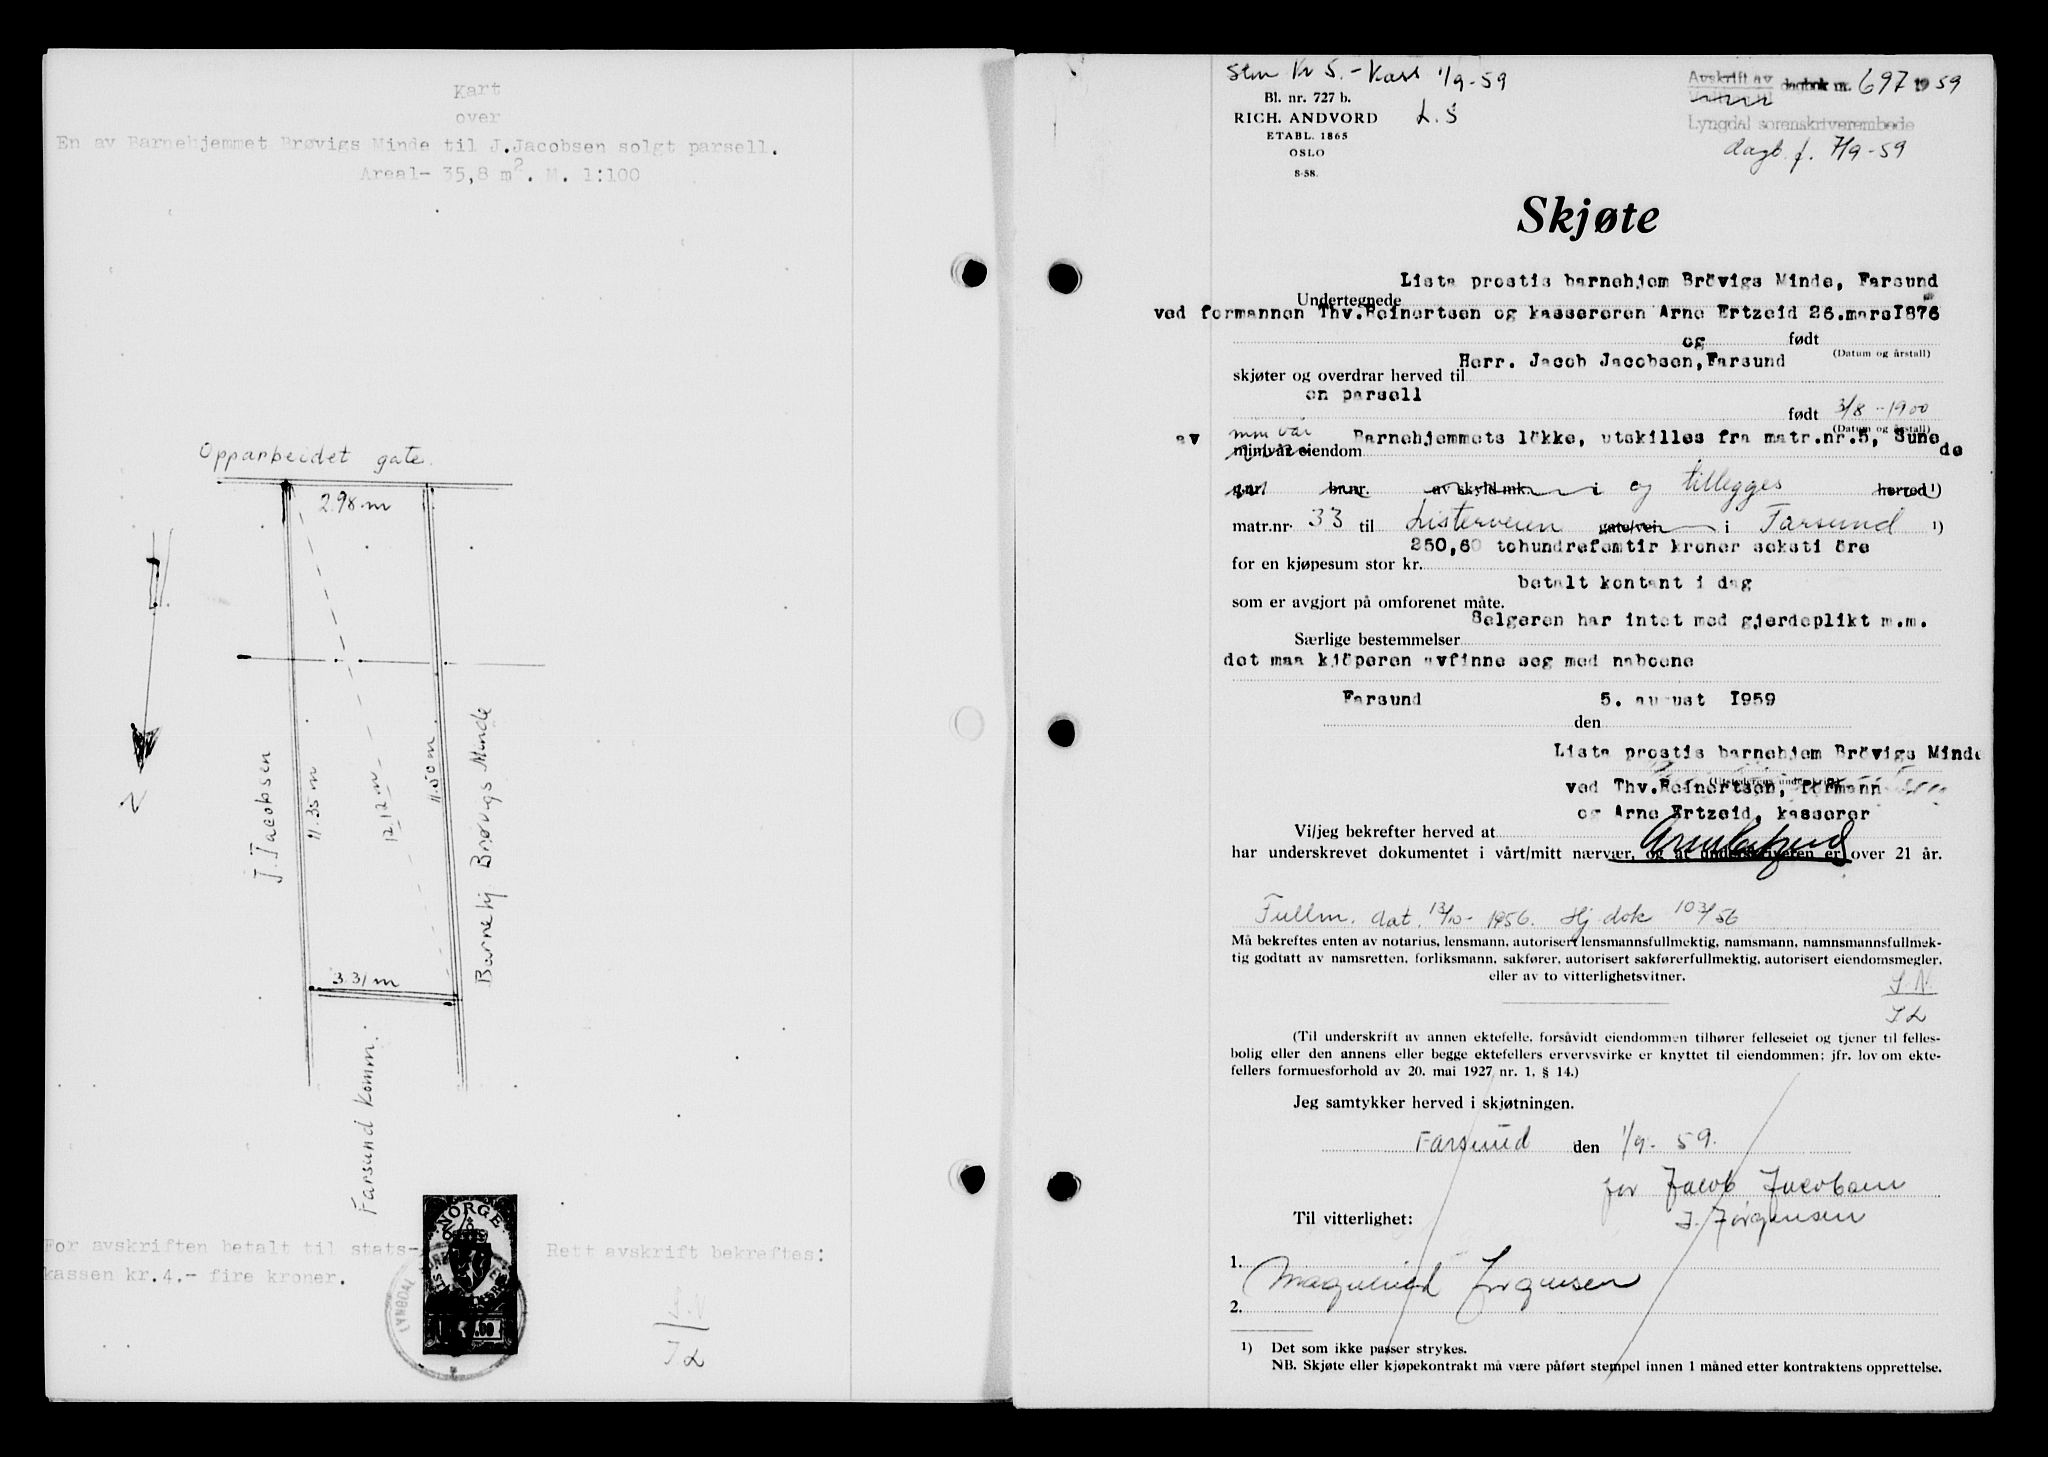 Kart
over
En av Barnehjemmet Brøvigs Minde til J.Jacobsen solgt parsell.
Areal- 35,8 m². M. 1:100
Opparbeidet gate.
2.98 m
J. Jacobsen
11.35 m
12.12 m
11.50 m
Barnehj Brøvigs Minde
N
3.31 m
Farsund Komm.
NORGE
LYNGDAL
For avskriften betalt til stats-
kassen kr.4.- fire kroner.
Rett avskrift bekreftes:
J L
1/9-59
Bl. nr. 727 b.
RICH. ANDVORD
ETABL. 1865
OSLO
8-58.
L. S
Avskrift av
dagbok nr. 697 1959
Lyngdal sorenskriverembede
dagb. f. 7/9-59
Skjøte
Lista prostis barnehjem Brövigs Minde, Farsund
Undertegnede
ved formannen Thv.Reinertsen og kassereren Arne Ertzeid 26.mars 1876
og født
(Datum og årstall)
Herr. Jacob Jacobsen,Farsund
skjøter og overdrar herved til
en parsell
født 3/8 - 1900
(Datum og årstall)
av min vår Barnehjemmets lökke, utskilles fra matr.nr.5, Sunde
min/vår eiendom
gnr. bnr. av skyld mk. i og tillegges herred 1)
matr.nr. 33 til Listerveien gate/vei i Farsund 1)
250,60 tohundrefemtir kroner seksti öre
for en kjøpesum stor kr.
betalt kontant i dag
som er avgjort på omforenet måte.
Selgeren har intet med gjerdeplikt m.m.
Særlige bestemmelser
det maa kjöperen avfinne seg med naboene
Farsund 5. august 1959
den
Lista prostis barnehjem Brövigs Minde
ved Thv.Reinertsen, formann
og Arne Ertzeid, kasserer
Vi/jeg bekrefter herved at
Arne Ertzeid
har underskrevet dokumentet i vårt/mitt nærvær, og at underskriveren er over 21 år.
Fullm. dat. 13/10-1956. Hj dok 103/56
Må bekreftes enten av notarius, lensmann, autorisert lensmannsfullmektig, namsmann, namnsmannsfullmek-
tig godtatt av namsretten, forliksmann, sakfører, autorisert sakførerfullmektig, autorisert eiendomsmegler,
eller av to vitterlighetsvitner.
J. N.
J L
(Til underskrift av annen ektefelle, forsåvidt eiendommen tilhører felleseiet og tjener til felles-
bolig eller den annens eller begge ektefellers ervervsvirke er knyttet til eiendommen; jfr. lov om ekte-
fellers formuesforhold av 20. mai 1927 nr. 1, § 14.)
Jeg samtykker herved i skjøtningen.
Farsund den 1/9- 59.
for Jacob Jacobsen
J. Jørgensen
Til vitterlighet:
1.
Jørgensen
2.
1) Det som ikke passer strykes.
NB. Skjøte eller kjøpekontrakt må være påført stempel innen 1 måned etter kontraktens opprettelse.